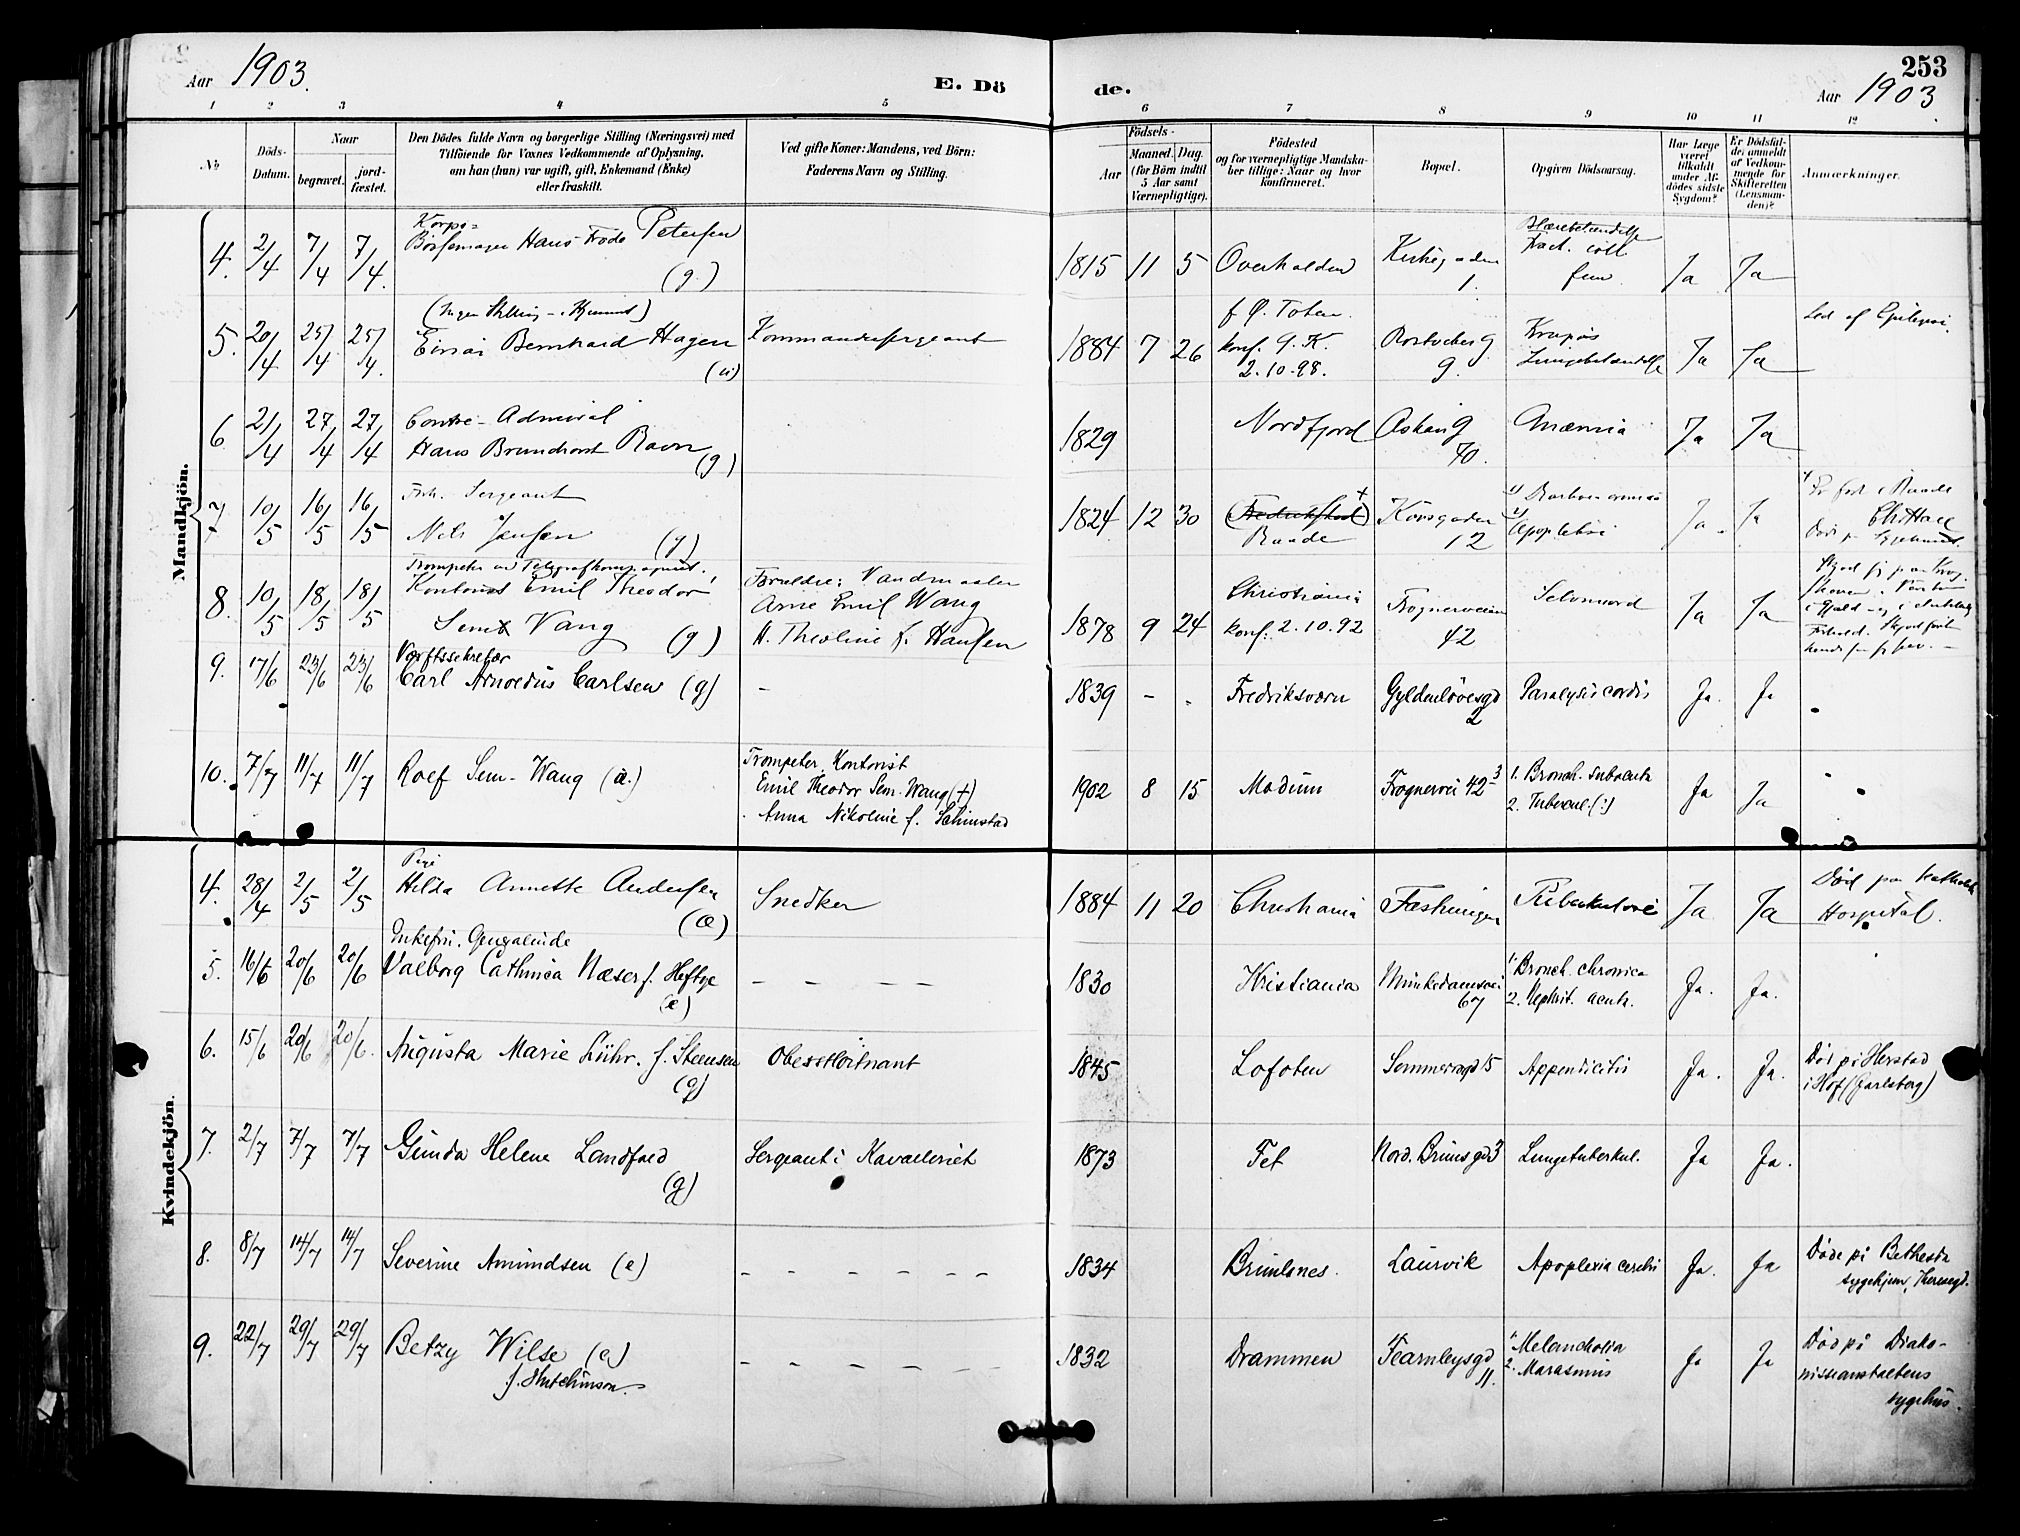 253
Aar 1903.
E. Dö
de.
Aar 1903
1 2 3 4 5 6 7 8 9 10 11 12
No
Döds-
Datum.
Naar
begravet.
jord-
fæstet.
Den Dödes fulde Navn og borgerlige Stilling (Næringsvei) med
Tilföiende for Voxnes Vedkommende af Oplysning,
om han (hun) var ugift, gift, Enkemand (Enke)
eller fraskilt.
Ved gifte Koner: Mandens, ved Börn:
Faderens Navn og Stilling.
Födsels-
Aar
Maaned.
Dag.
(for Börn indtil
5 Aar samt
Værnepligtige).
Födested
og for værnepligtige Mandska-
ber tillige: Naar og hvor
konfirmeret.
Bopæl.
Opgiven Dödsaarsag.
Har Læge
været
tilkaldt
under Af-
dödes sidste
Sygdom?
Er Dödsfal-
det anmeldt
af Vedkom-
mende for
Skifteretten
(Lensman-
den)?
Anmærkninger.
Mandkjön.
4. 2/4 7/4 7/4.
Korps-
Bøssemager Hans Petersen
(g.)
1815 11 5 Overhalden
1.
Blærebetændelse
Ja Ja
5. 20/4 25/4 25/4.
Einar Bernhard Hagen
(u)
Kommandersergeant
1884 7 26
f. Ø. Toten.
konf. G. K.
2.10.98.
9.
Krupøs
Lungebetændelse
Ja Ja
Led af Epilepsi.
6 21/4 27/4 27/4
Contre-Admiral
Hans Brunchorst Ravn
(g)
1829
Nordfjord
70.
Anæmia
Ja Ja
7 10/5 16/5 16/5
Sergeant
Nils Jensen
(g)
1824 12 30
(Fredrikstad) +
Raade
Korsgaden
12
Apoplexi
Ja Ja
8. 10/5 18/5 18/5
Kontorist Emil Theodor
Sem Vang
(g)
Forældre: Vandmaaler
Arne Emil Wang
H. Theoline f. Hansen
1878 9 24
Christiania
konf. 2.10.92
Frognerveien
42
Selvmord
Ja Ja
9. 17/6 23/6 23/6
Værftssekretær
Carl Arnoldus Carlsen (g)
-
1839 - -
Fredriksværn
Gyldenløvesgd
2
Paralysis cordis
Ja. Ja
10. 7/7 11/7 11/7
Rolf Sem-Wang (u.)
Trompeter, Kontorist
Emil Theodor Sem-Wang (+)
Anna Nikoline f.
1902 8 15
Modum
Frognervei 42 3
1. Bronch. subacuta
2. Tubercul. (?)
Ja Ja
Kvindekjön.
4. 28/4 2/5 2/5
Pige
Hilda Annette Andersen
Snedker
1884 11 20
Christiania
Fæstningen
Tuberkulose
Ja Ja
Død paa katholsk
Hospital.
5. 16/6 20/6 20/6
Valborg Cathinca Næser f. Heftye
(e)
- - - -
1830
Kristiania
Munkedamsvei
67
1. Bronch. chronica
2. Nephrit. acuta.
Ja. Ja.
6. 15/6 20/6 20/6.
Augusta Marie Lühr. f. Steensen
(g)
Oberstløitnant
1845
Lofoten
Sommerrogd 15
Appendicitis
Ja. Ja.
Død på Herstad
i Hof (Jarlsberg)
7. 2/7 7/7 7/7
Gunda Helene Landfald
(g)
Sergeant i Kavalleriet
1873
Fet
Nord. Brunsgd 3
Lungetuberkul.
Ja Ja.
8. 8/7 14/7 14/7
Severine Amundsen (e)
- - - - - -
1834
Brunlanes.
Laurvik
Apoplexia cerebri
Ja. Ja
Døde på Bethesda
sygehjem,
9. 22/7 29/7 29/7
Betzy Wilse (e)
f. Hutchinson.
- - - - -
1832
Drammen
Fearnleysgd
11.
1. Melancholia
2. Marasmus
Ja Ja
Død på Diako-
nisseanstaltens
sygehus.